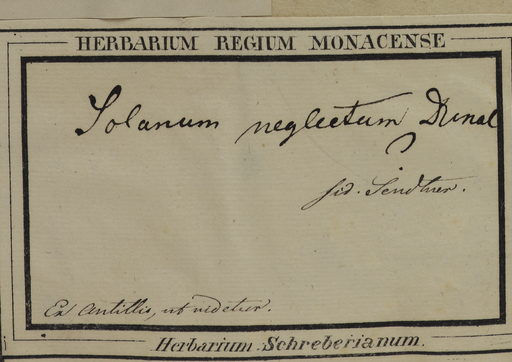 HERBARIUM REGIUM MONACENSE
Solanum neglectum Dunal
fid. Sendtner.
Ex Antillis, ut videtur.
Herbarium Schreberianum.